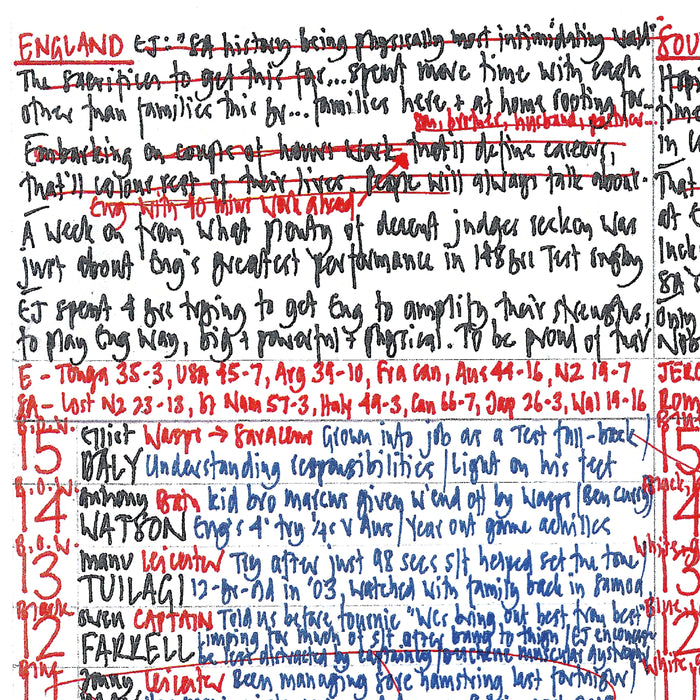 ENGLAND EJ: "SA history being physically most intimidating
SOU
The sacrifices to get this far...spent more time with each
other than families this yr...families here, + at home rooting for...
Son, brother, husband, partner...
Embarking on couple of hours work That'll define careers,
That'll colour rest of their lives. People will always talk about.
Eng with 40 mins work ahead
A week on from what plenty of decent judges reckon was
just about Eng's greatest performance in 148 yrs Test rugby
EJ spent 4 yrs trying to get Eng to amplify their strengths,
to play Eng way, big + powerful + physical. To be proud of their
E - Tonga 35-3, USA 45-7, Arg 39-10, Fra can, Aus 44-16, NZ 19-7
SA - Lost NZ 23-13, bt Nam 57-3, Italy 49-3, Can 66-7, Jap 26-3, Wal 19-16
B.O.W.
15 Elliot Wasps → Saracens Grown into job as a Test full-back
DALY Understanding responsibilities / Light on his feet
B.O.W.
14 Anthony Bath kid bro Marcus given w'end off by Wasps (Ben Curry)
WATSON Eng's 4' try 1/4s v Aus / Year out game achilles
B.O.W.
13 Manu Leicester Try after just 98 secs s/f helped set the tone
TUILAGI 12-yr-old in '03, watched with family back in Samoa
Black
12 Owen CAPTAIN Told us before tournie "Wcs bring out best from best"
FARRELL Limping for much of s/f after bang to thigh / EJ
be less distracted by captaincy
Blue
Jonny Leicester Been managing sore hamstring last fortnight